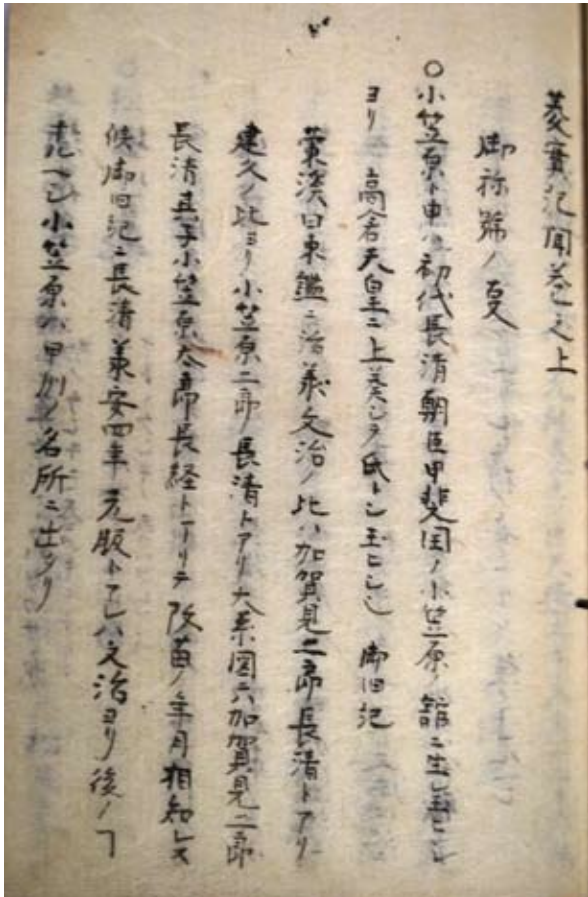 菱實記聞巻之上
御称號ノ㕝
○小笠原ト申ハ初代長清朝臣甲斐国ノ小笠原ノ舘ニ生レ玉ヒシ
ヨリ 高倉天皇ニ上奏シヲ氏トシ玉ヒシ 御旧記
業溪曰東鑑ニ治義文治ノ比ハ加賀見二郎長清トアリ
建久ノ比ヨリ小笠原二郎長清トアリ大系図六加賀見二郎
長清其子小笠原太郎長経トアリテ改苗ノ年月相知レス
候御旧記ニ長清義安四年元服トアレハ文治ヨリ後ノ
小笠原ハ甲州ノ名所ニ出タリ